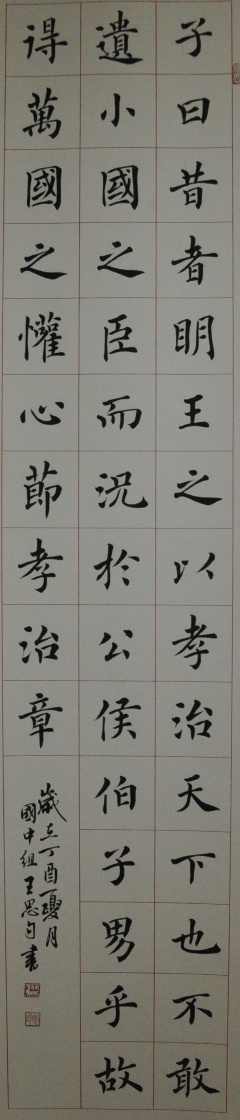 子曰昔者明王之以孝治天下也不敢
遺小國之臣而況於公侯伯子男乎故
得萬國之懽心節孝治章
歲在丁酉夏月
國中組王思勻書